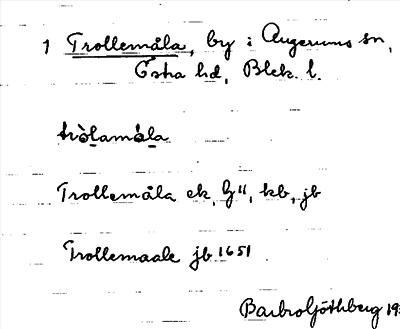 1 Trollemåla, by i Augerums sn,
Östra hd, Blek. l.
Trollemåla ek, kb, jb
Trollemaale jb 1651
Barbro Göthberg